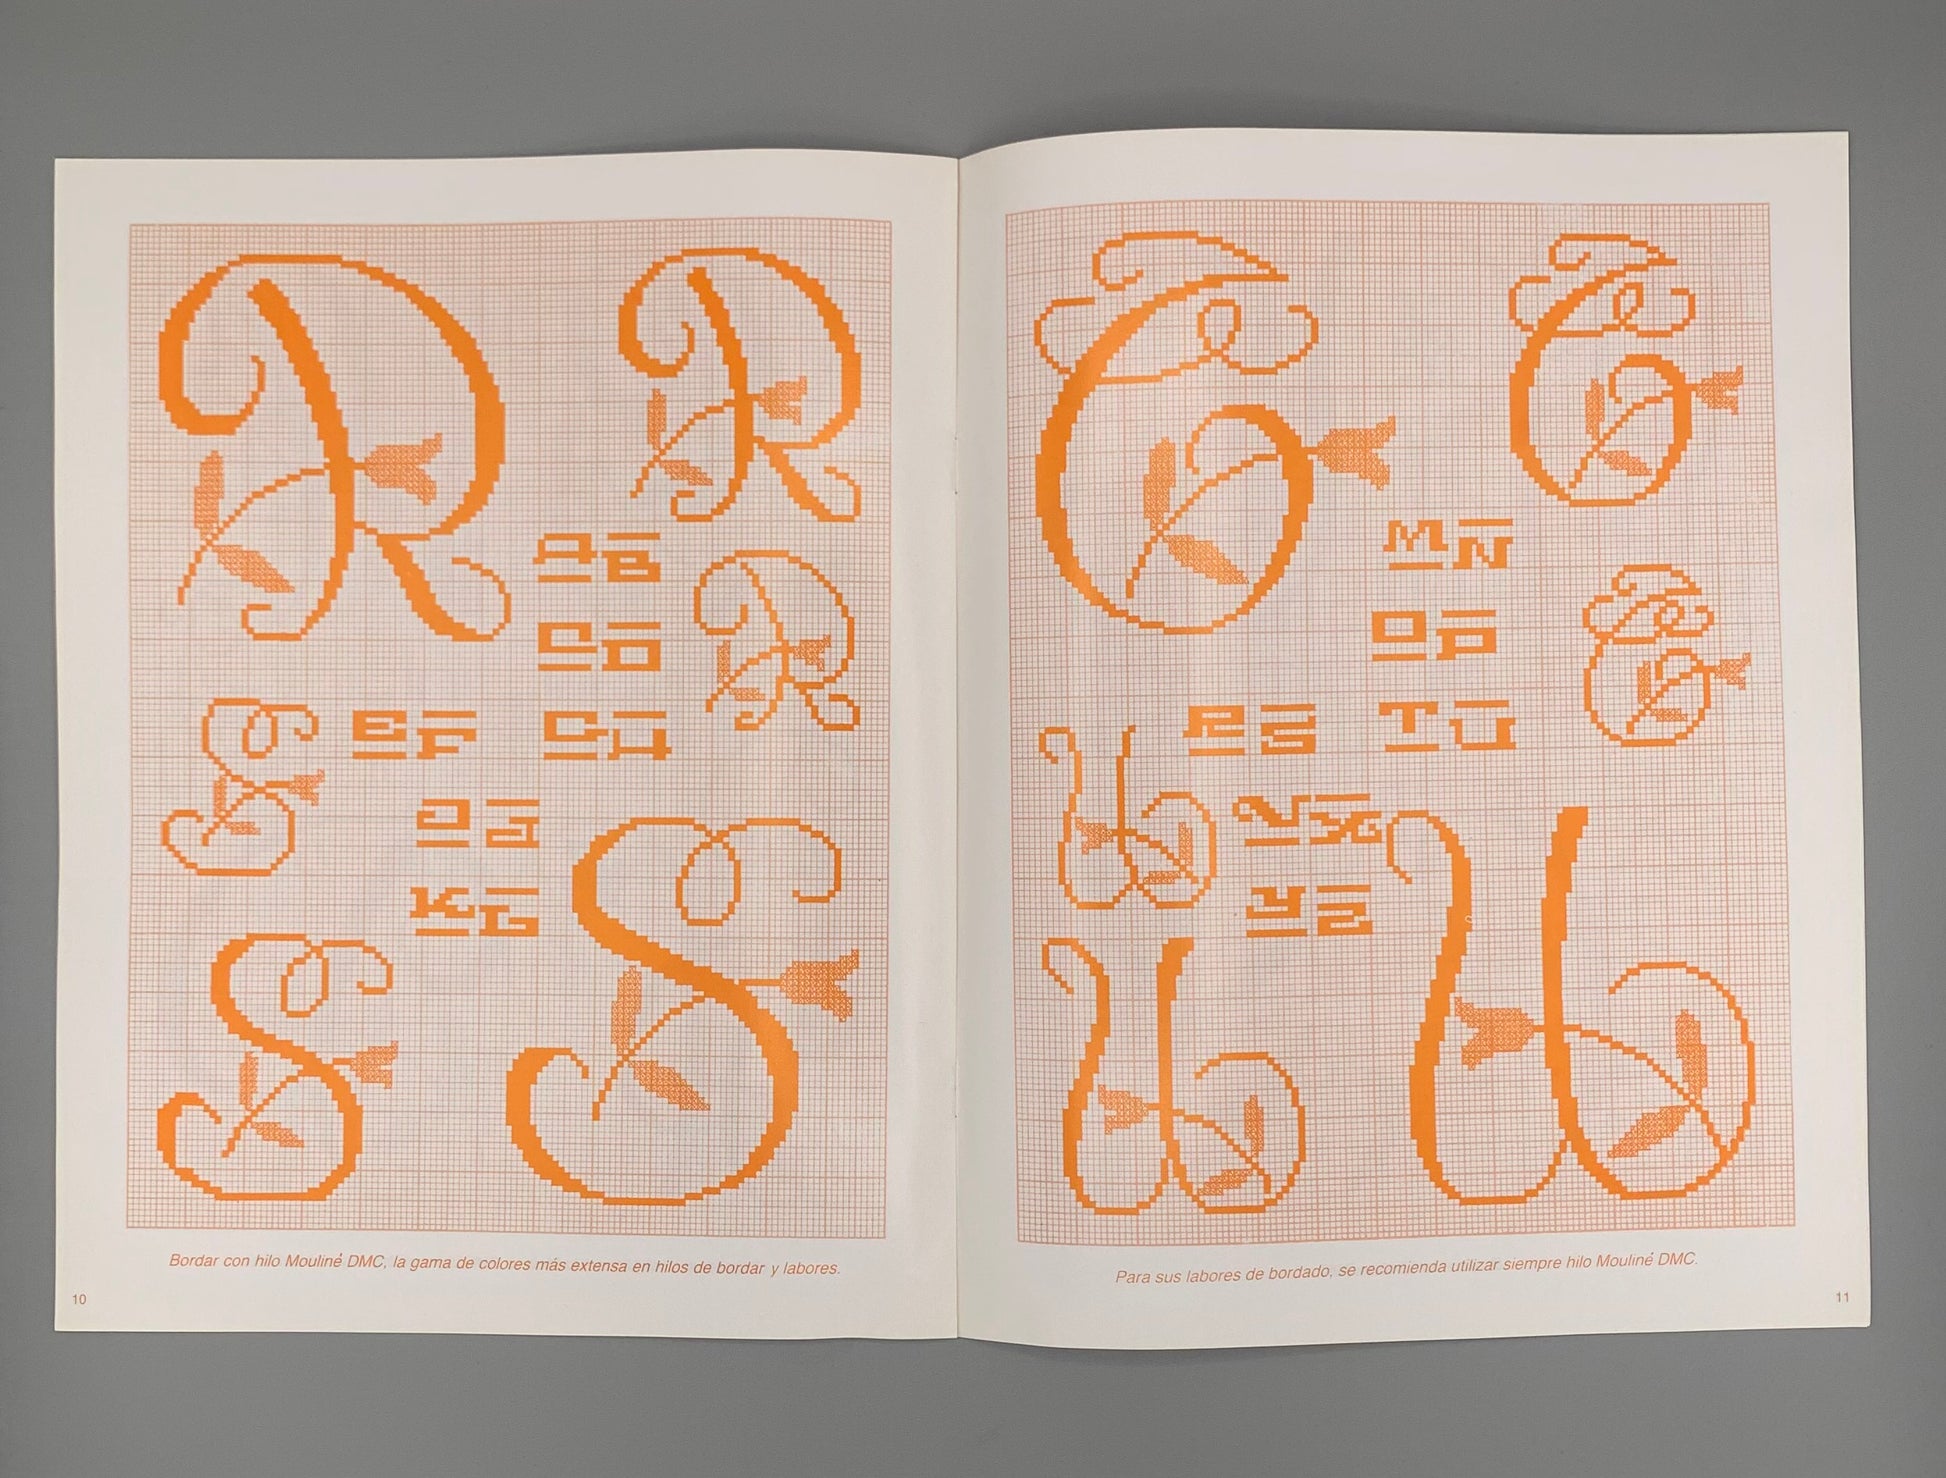 R R
AB
R
CD
S EF GH
IJ
S
KL
S
Bordar con hilo Mouliné DMC, la gama de colores más extensa en hilos de bordar y labores.
10
T T
MN
T
OP
RS TU
U VX U
YZ
U
Para sus labores de bordado, se recomienda utilizar siempre hilo Mouliné DMC.
11